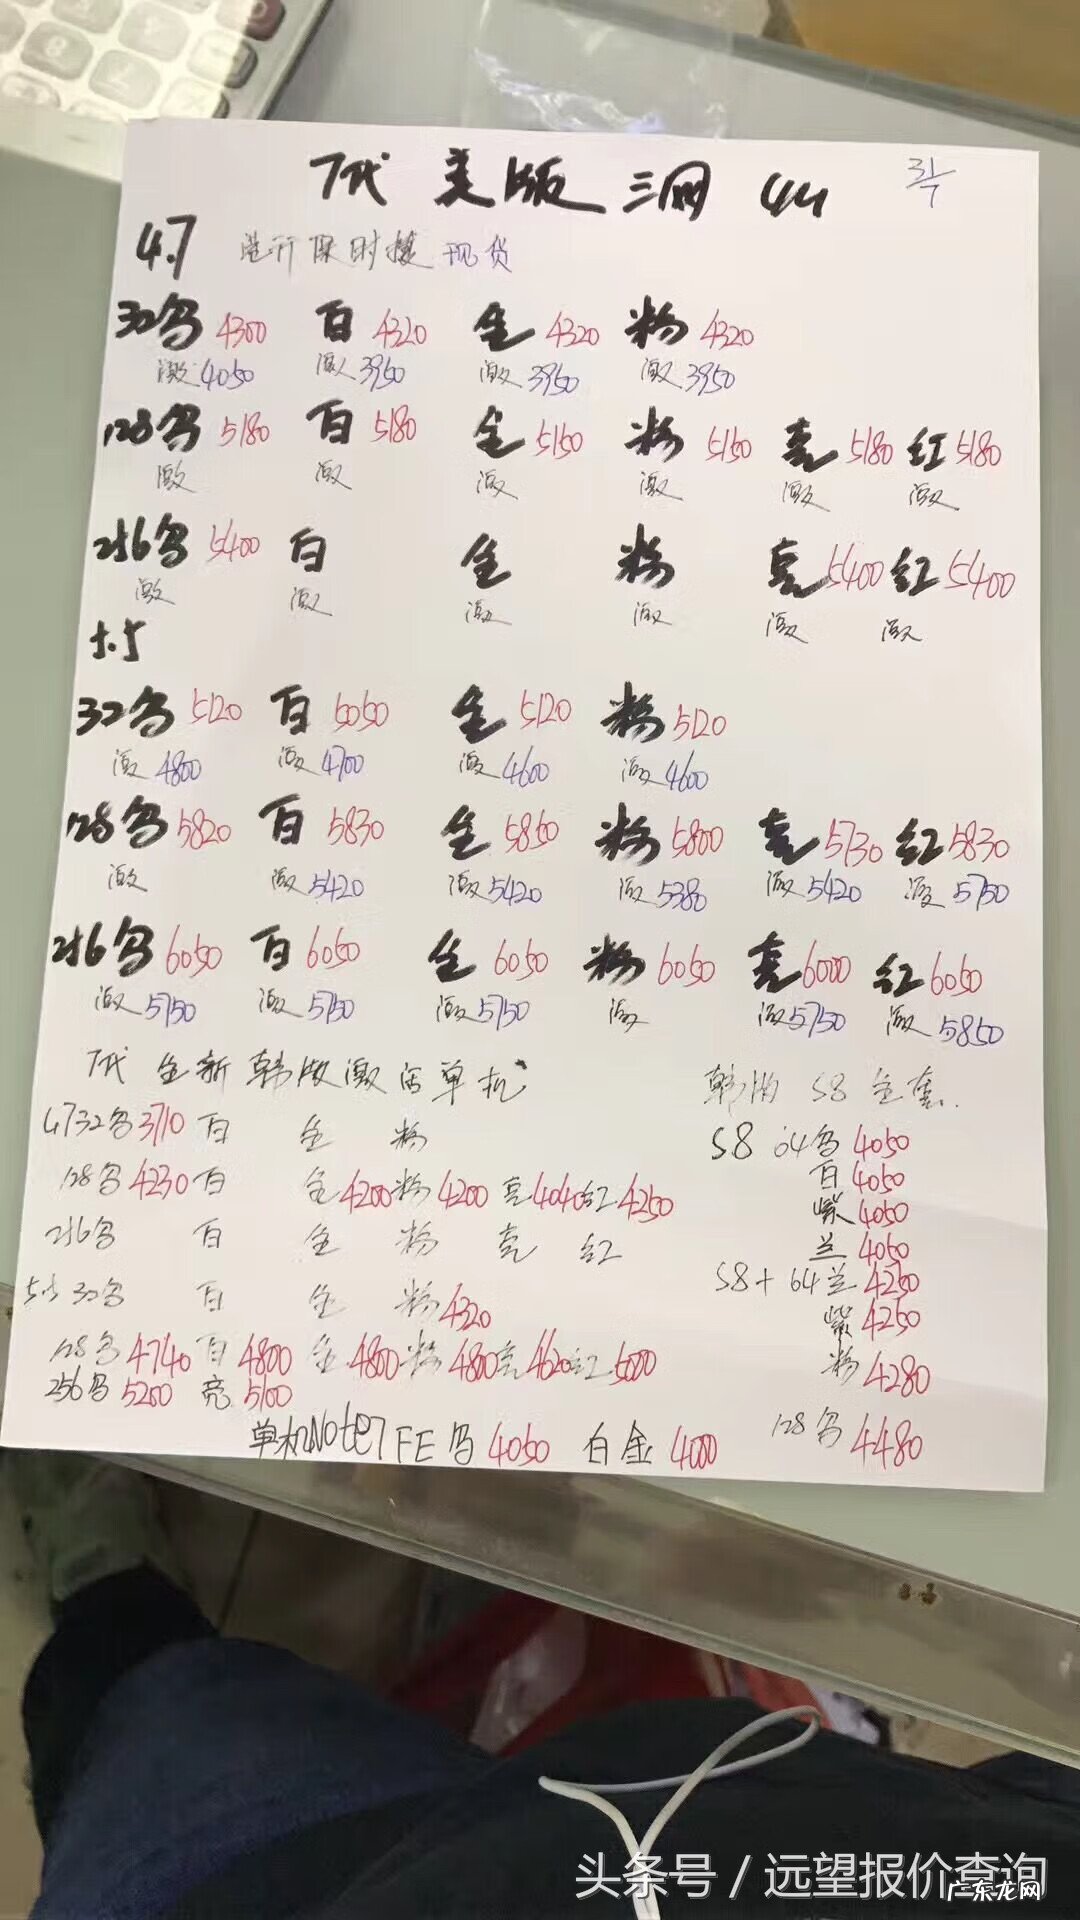 7代 美版 三网 4G 31/7
4.7 港行保时捷 现货
32乌 4300 白 4320 金 4320 粉 4320
激 4050 激 3950 激 3950 激 3950
128乌 5180 白 5180 金 5150 粉 5150 亮 5180 红 5180
激 激 激 激 激 激
256乌 5400 白 金 粉 亮 5400 红 5400
激 激 激 激 激 激
5.5
32乌 5120 白 5050 金 5120 粉 5120
激 4800 激 4700 激 4600 激 4600
128乌 5820 白 5830 金 5850 粉 5800 亮 5730 红 5830
激 激 5420 激 5420 激 5380 激 5420 激 5750
256乌 6050 白 6050 金 6050 粉 6050 亮 6000 红 6050
激 5750 激 5750 激 5750 激 激 5750 激 5850
7代 全新 韩版激活单机
4.7 32乌 3710 白 金 粉
128乌 4230 白 金 4200 粉 4200 亮 4040 红 4250
256乌 白 金 粉 亮 红
5.5 32乌 白 金 粉 4320
128乌 4740 白 4800 金 4800 粉 4800 亮 4620 红 5000
256乌 5200 亮 5100
单机Note7 FE乌 4050 白金 4000
韩版 S8 全套
S8 64乌 4050
白 4050
紫 4050
兰 4050
S8+ 64兰 4250
紫 4250
粉 4280
128乌 4480
头条号 / 远望报价查询
广东龙网